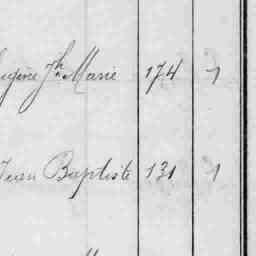 Eugène Jh. Marie 174 1
Jean Baptiste 131 1